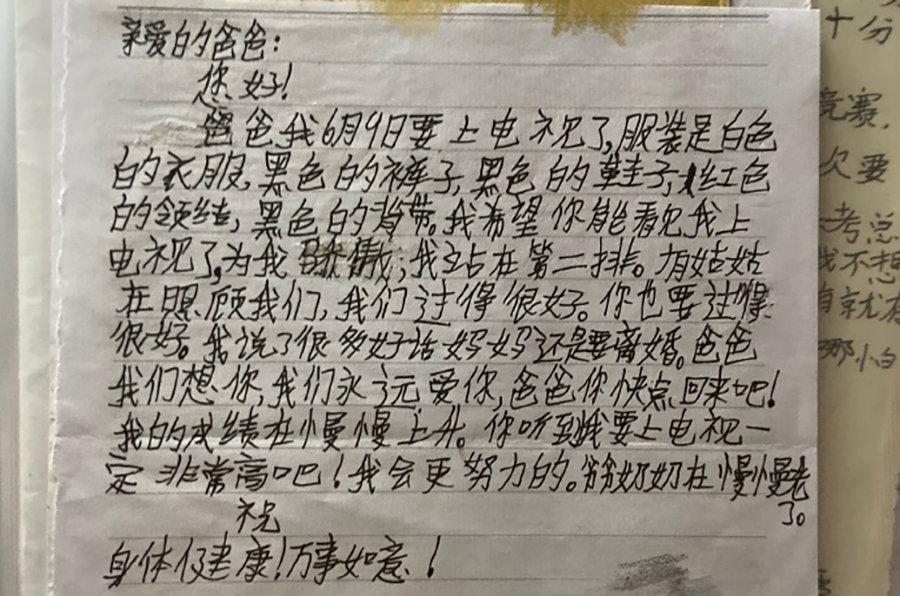 亲爱的爸爸：
您好！
爸爸，我6月9日要上电视了，服装是白色
的衣服，黑色的裤子，黑色的鞋子，红色
的领结，黑色的背带。我希望你能看见我上
电视了，为我骄傲；我站在第二排。有姑姑
在照顾我们，我们过得很好。你也要过得
很好。我说了很多好话妈妈还是要离婚。爸爸
我们想你，我们永远爱你，爸爸你快点回来吧！
我的成绩在慢慢上升。你听到我要上电视一
定非常高吧！我会更努力的。爷奶奶在慢慢老
了。
祝
身体健康！万事如意！
十分
竞赛，
欠要
考总
我不想
就有
哪怕